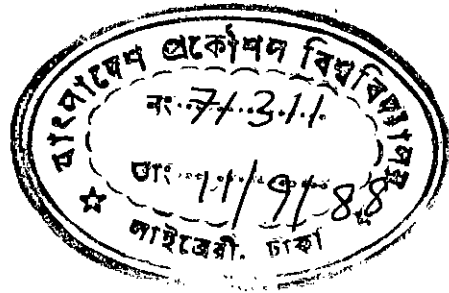 বাংলাদেশ প্রকৌশল বিশ্ববিদ্যালয়
নং 71311
তাং 11/9/88
লাইব্রেরী, ঢাকা